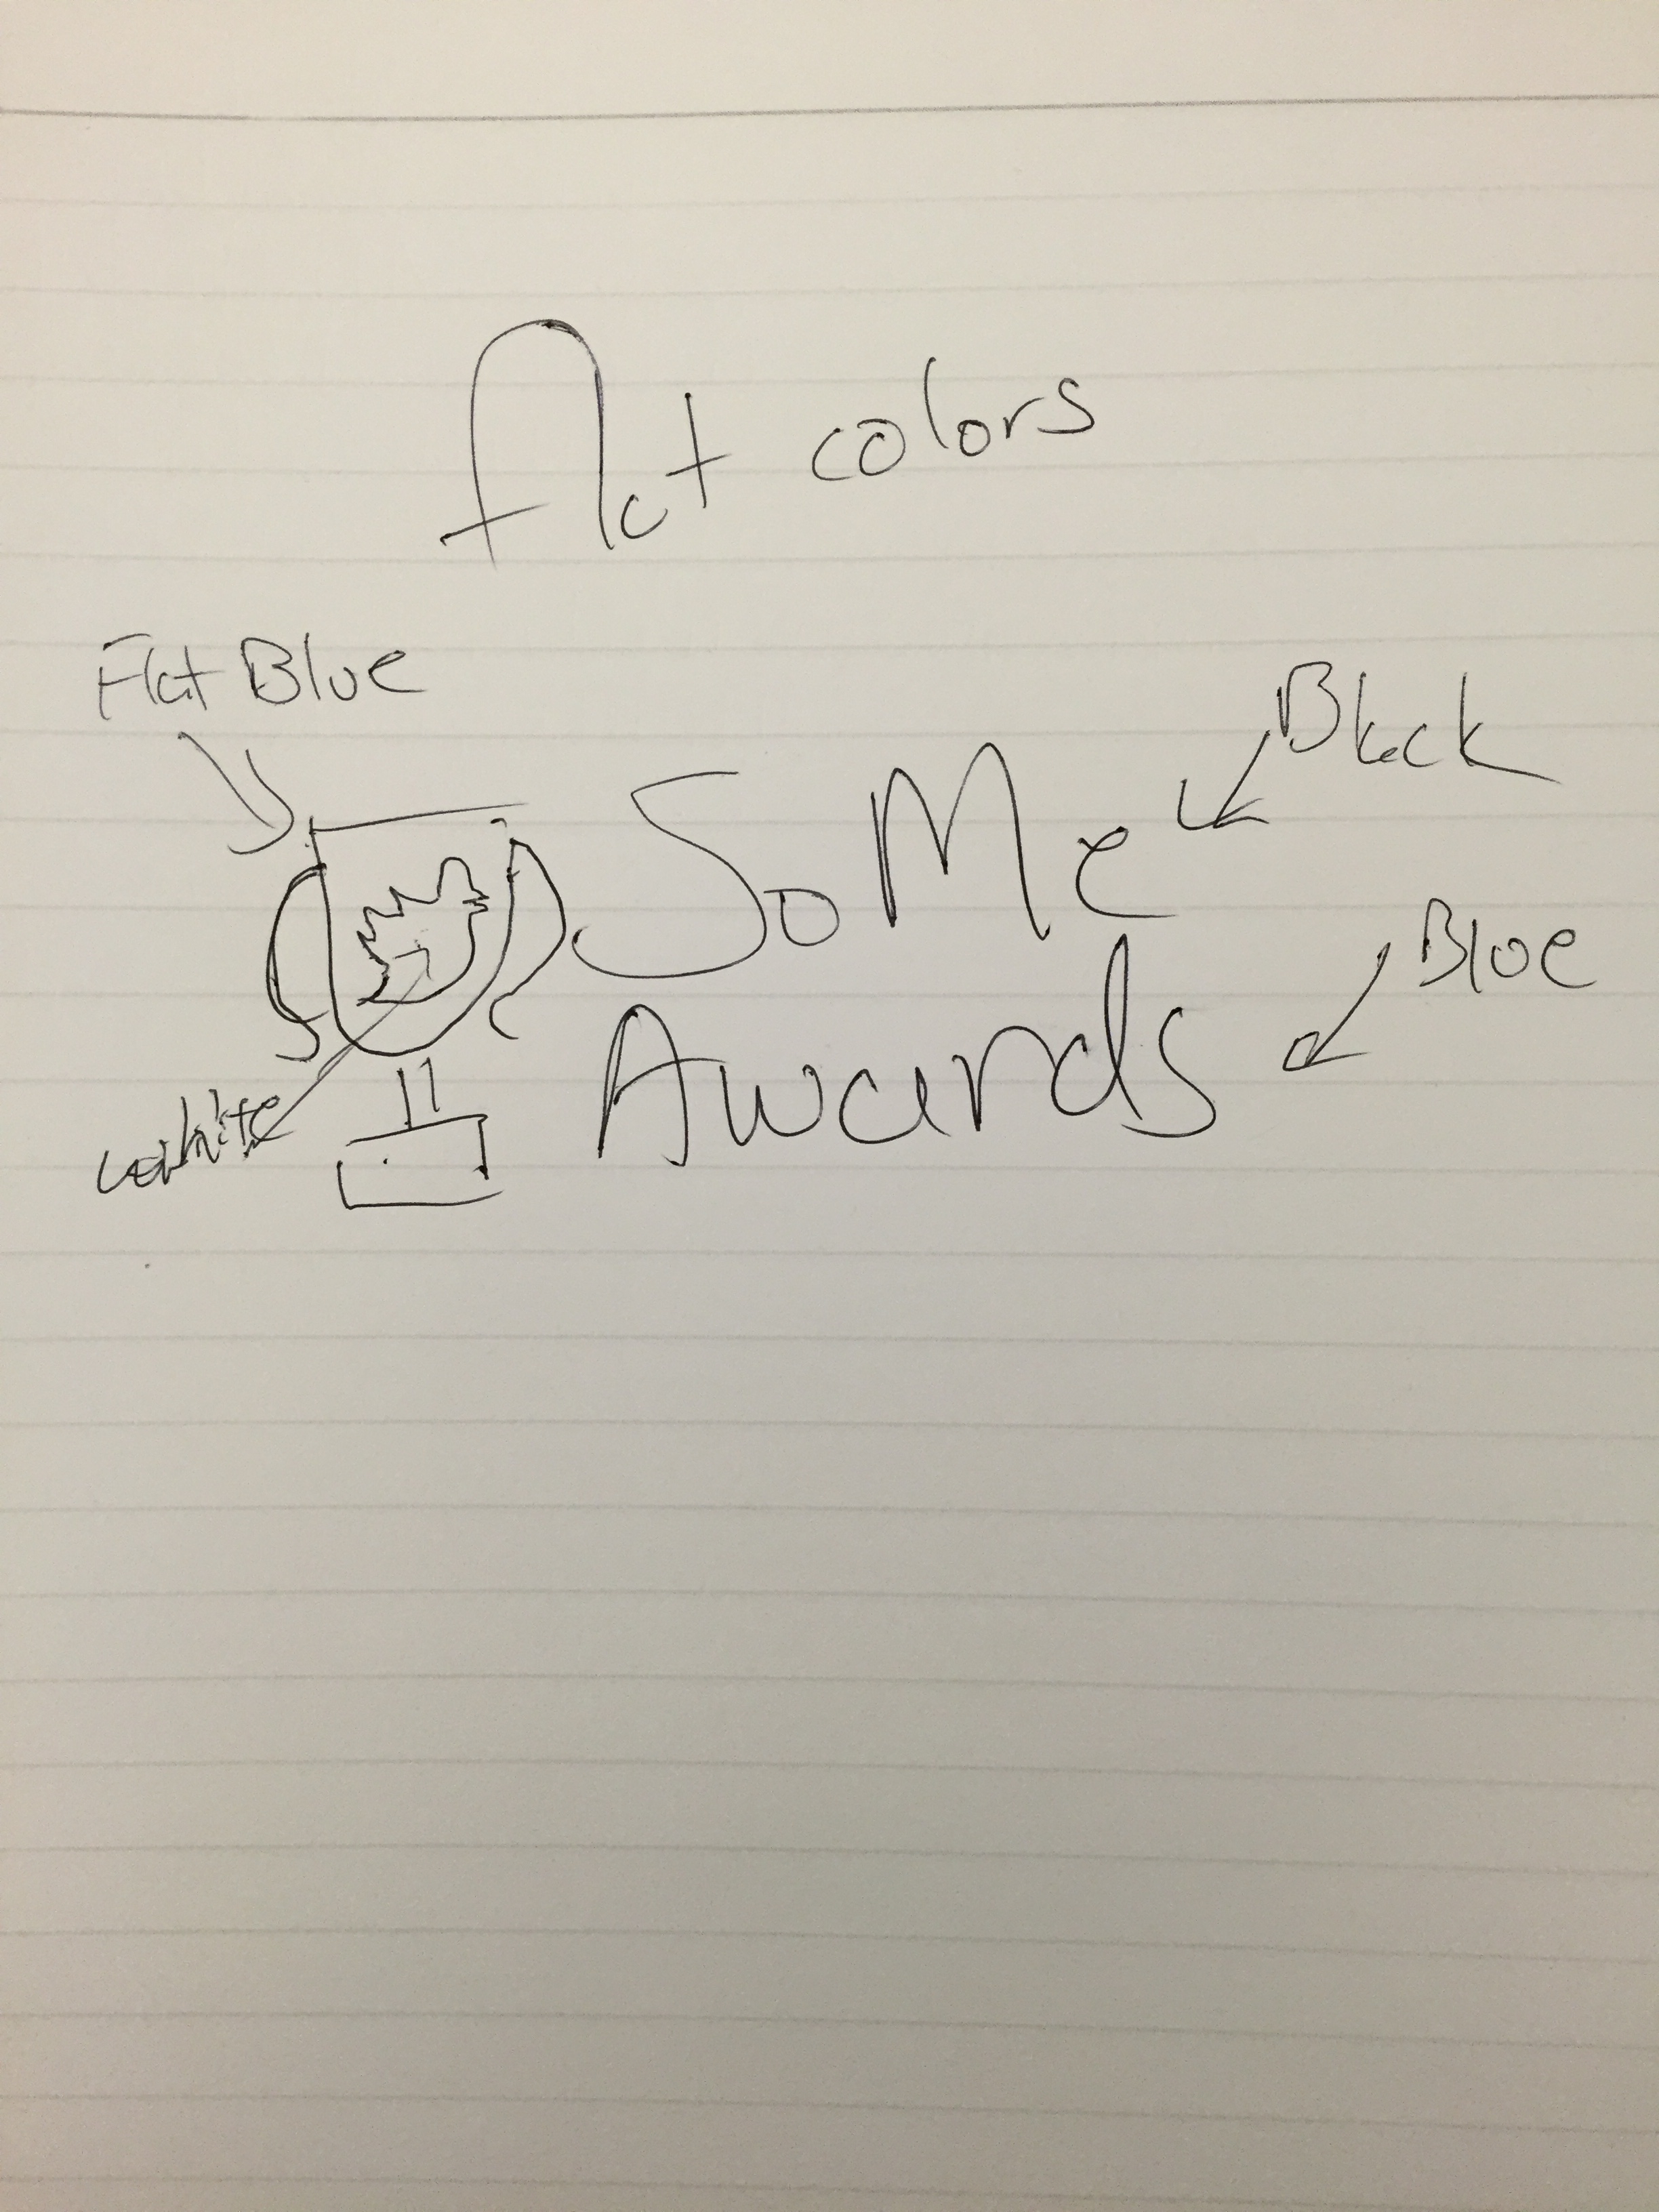 flat colors
Flat Blue
Black
SoMe
Blue
Awards
white